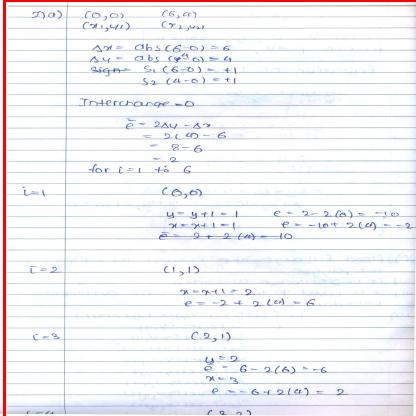 2)a) (0,0) (6,4)
(x1,y1) (x2,y2)
Δx = abs (6-0) = 6
Δy = abs (4-0) = 4
S1 (6-0) = +1
S2 (4-0) = +1
Interchange = 0
ē = 2Δy - Δx
= 2(4) - 6
= 8 - 6
= 2
for i = 1 to 6
i=1 (0,0)
y = y+1 = 1 e = 2 - 2(6) = -10
x = x+1 = 1 e = -10 + 2(4) = -2
ē = 2 + 2(4) = 10
i=2 (1,1)
x = x+1 = 2
e = -2 + 2(4) = 6
i=3 (2,1)
y = 2
ē = 6 - 2(6) = -6
x = 3
e = -6 + 2(4) = 2